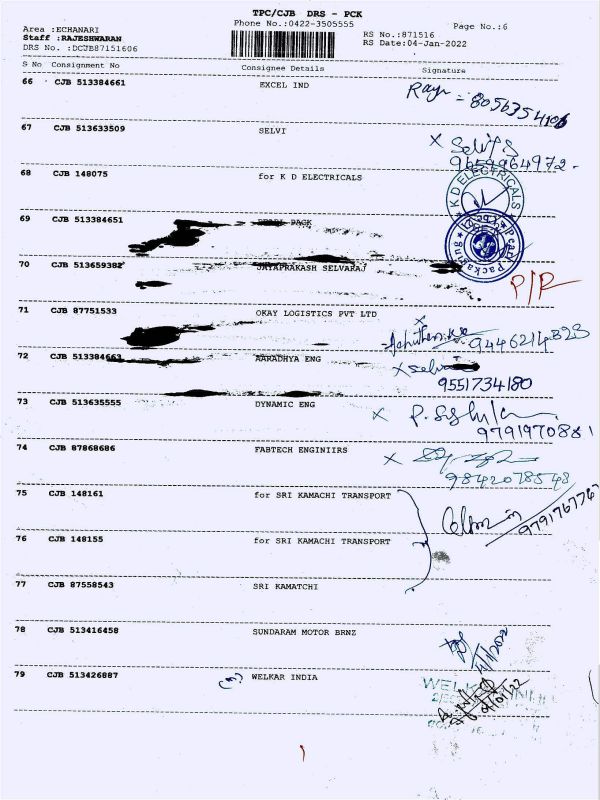 TPC/CJB DRS - PCK
Phone No.:0422-3505555 Page No.:6
Area :ECHANARI RS No.:871516
Staff :RAJESHWARAN RS Date:04-Jan-2022
DRS No. :DCJB87151606
S No Consignment No Consignee Details Signature
66 CJB 513384661 EXCEL IND
67 CJB 513633509 SELVI
9659964972
68 CJB 148075 for K D ELECTRICALS
K D ELECTRICALS
69 CJB 513384651 PEARL PACK
Pearl Packaging
70 CJB 513659382 JAYAPRAKASH SELVARAJ
P/R
71 CJB 87751533 OKAY LOGISTICS PVT LTD
9446214823
72 CJB 513384663 AARADHYA ENG
x Selva
9551734180
73 CJB 513635555 DYNAMIC ENG
9791970881
74 CJB 87868686 FABTECH ENGINIIRS
9842078548
75 CJB 148161 for SRI KAMACHI TRANSPORT
76 CJB 148155 for SRI KAMACHI TRANSPORT
77 CJB 87558543 SRI KAMATCHI
78 CJB 513416458 SUNDARAM MOTOR BRNZ
79 CJB 513426887 WELKAR INDIA